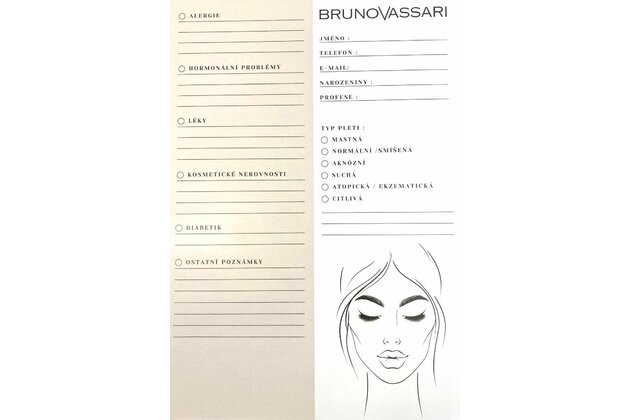 ALERGIE
HORMONÁLNÍ PROBLÉMY
LÉKY
KOSMETICKÉ NEROVNOSTI
DIABETIK
OSTATNÍ POZNÁMKY
BRUNOVASSARI
JMÉNO :
TELEFON :
E-MAIL:
NAROZENINY :
PROFESE :
TYP PLETI :
MASTNÁ
NORMÁLNÍ /SMÍŠENÁ
AKNÓZNÍ
SUCHÁ
ATOPICKÁ / EKZEMATICKÁ
CITLIVÁ